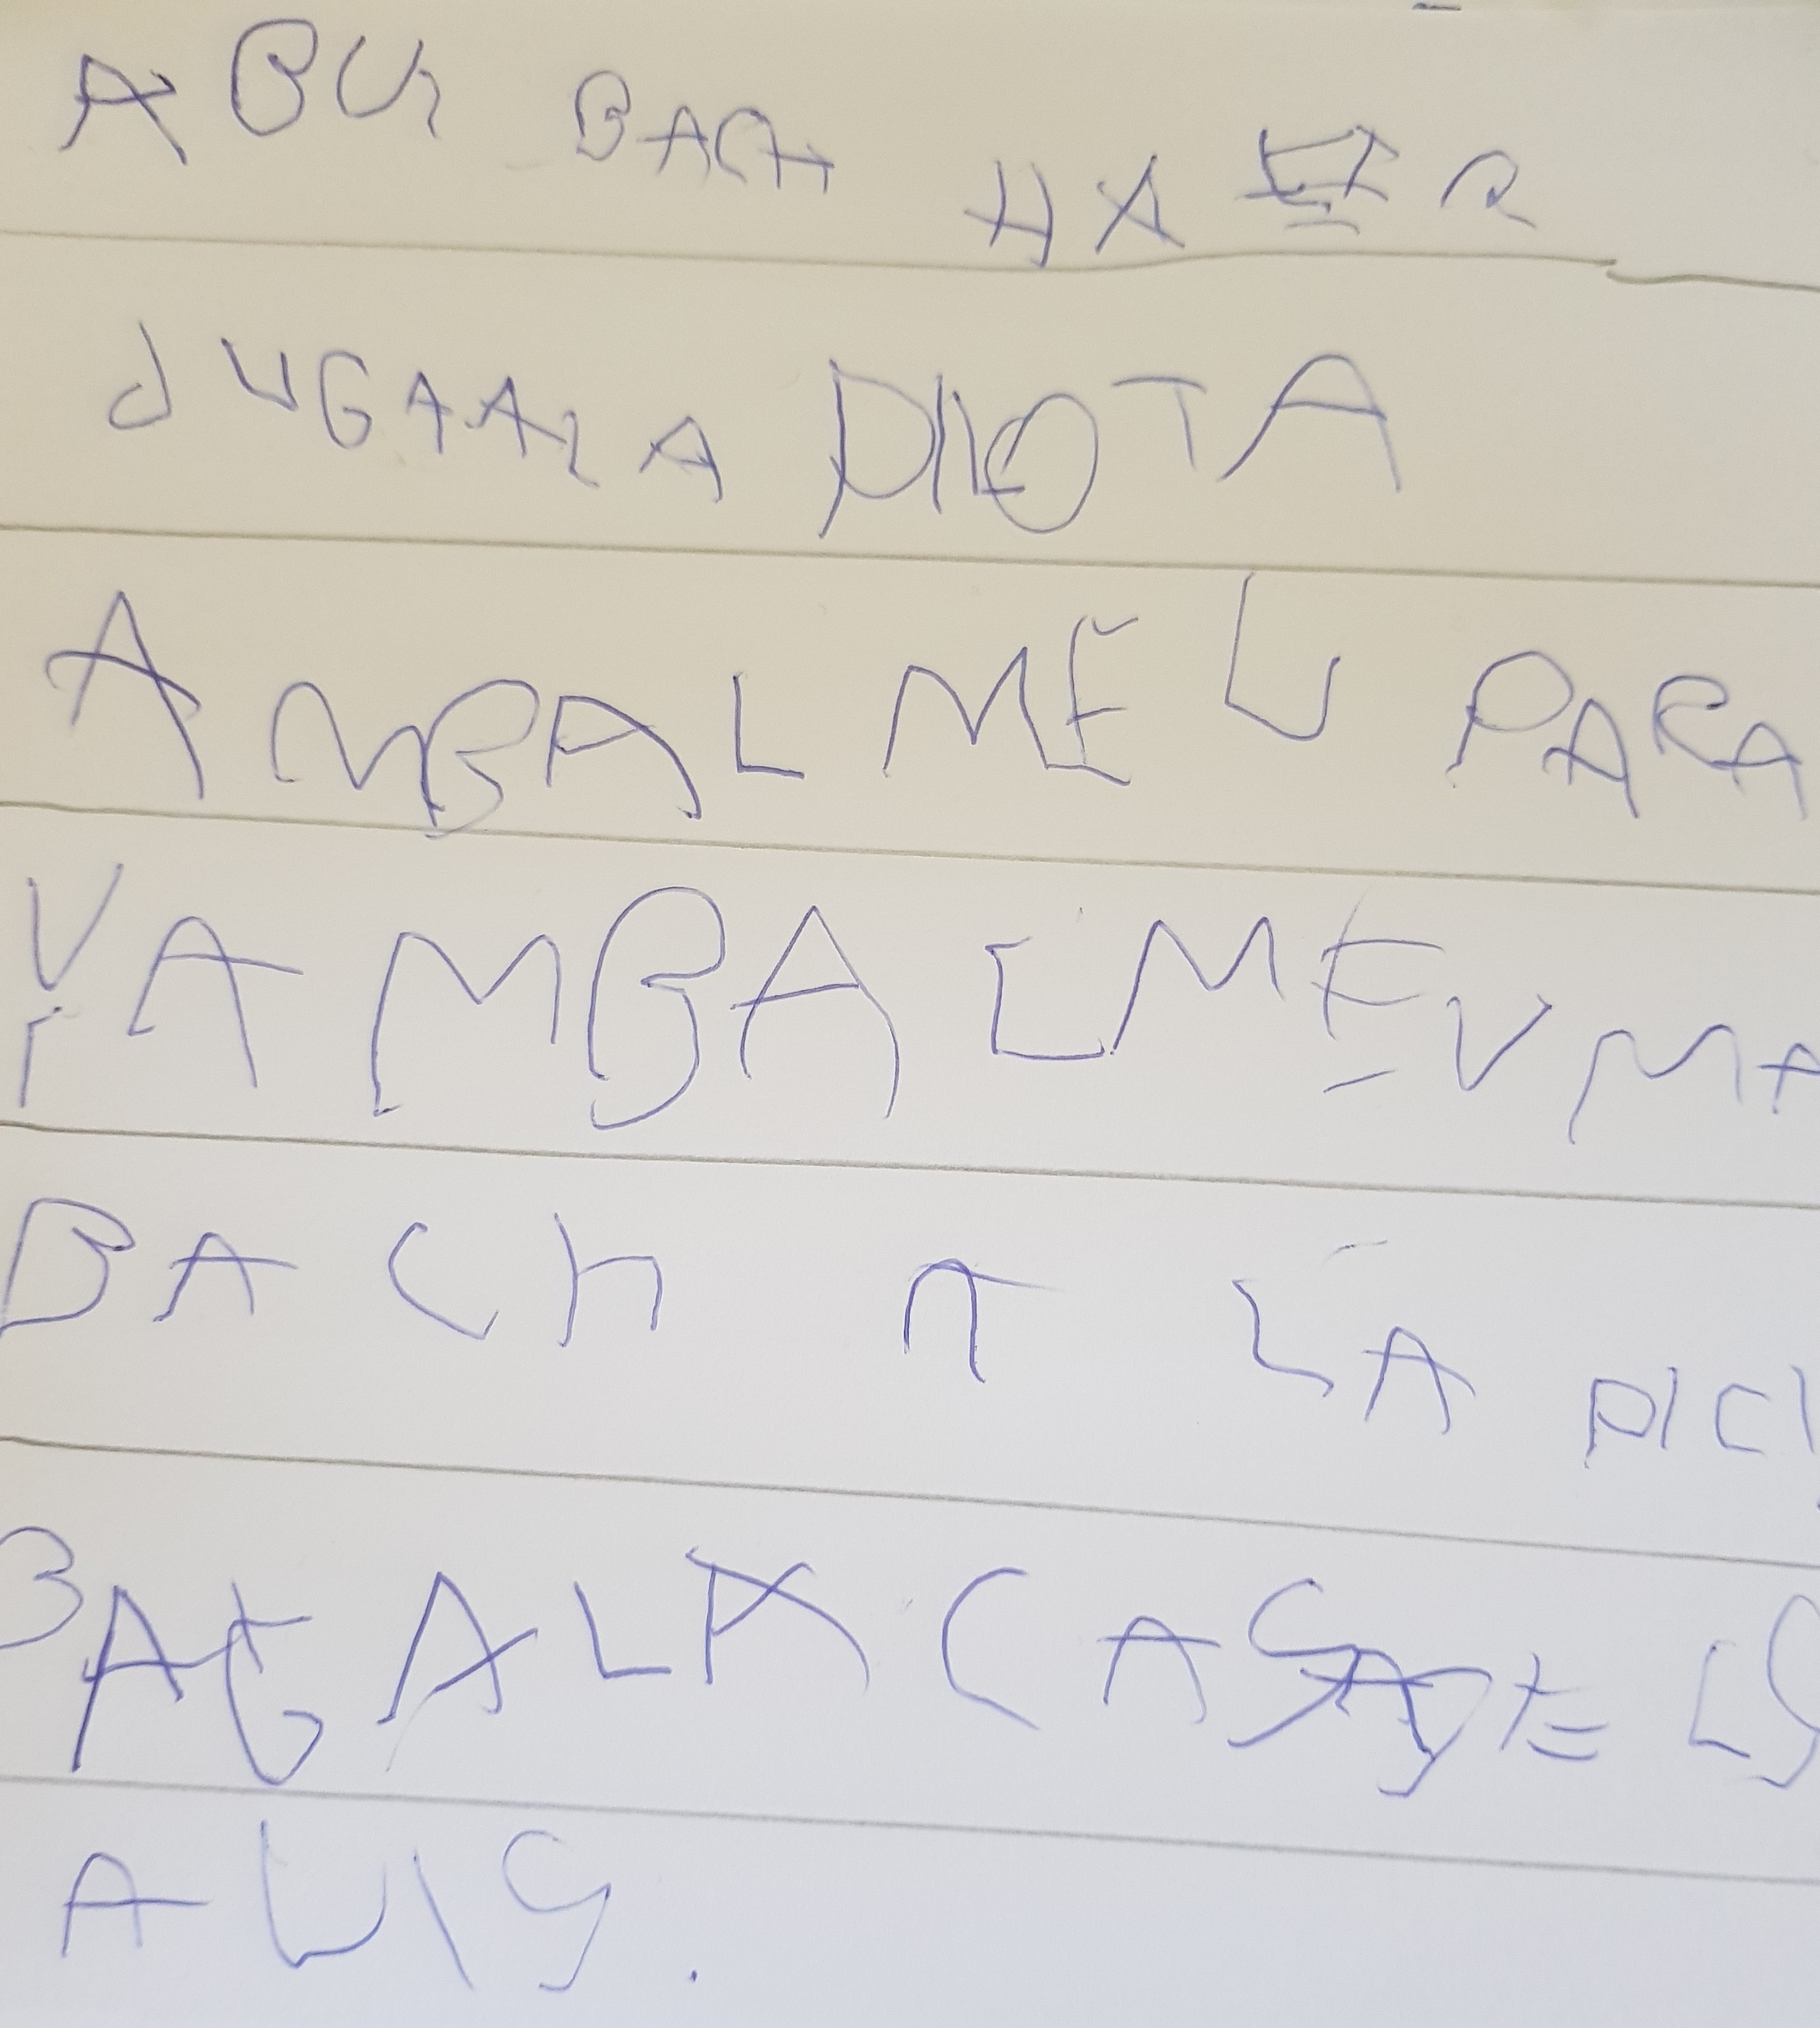 ABUI BACH HA ER
JUGAR A PILOTA
AMBAL MEU PARA
I AMBAL MEU MA
VA
BACH A LA PICI
BAGALA CASA DELS
AUIS.